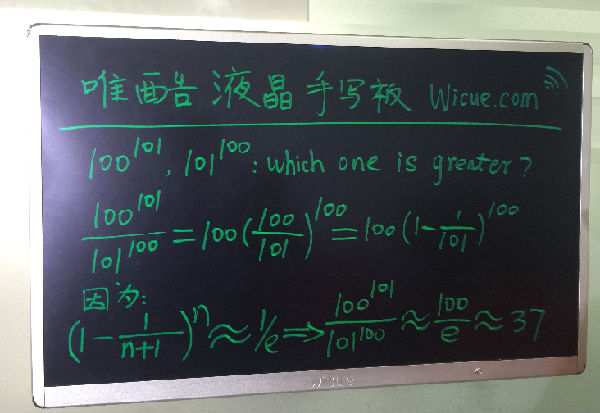 唯酷 液晶手写板 Wicue.com
100^101, 101^100: which one is greater?
100^101/101^100 = 100(100/101)^100 = 100(1-1/101)^100
因为:
(1-1/(n+1))^n ≈ 1/e ⇒ 100^101/101^100 ≈ 100/e ≈ 37